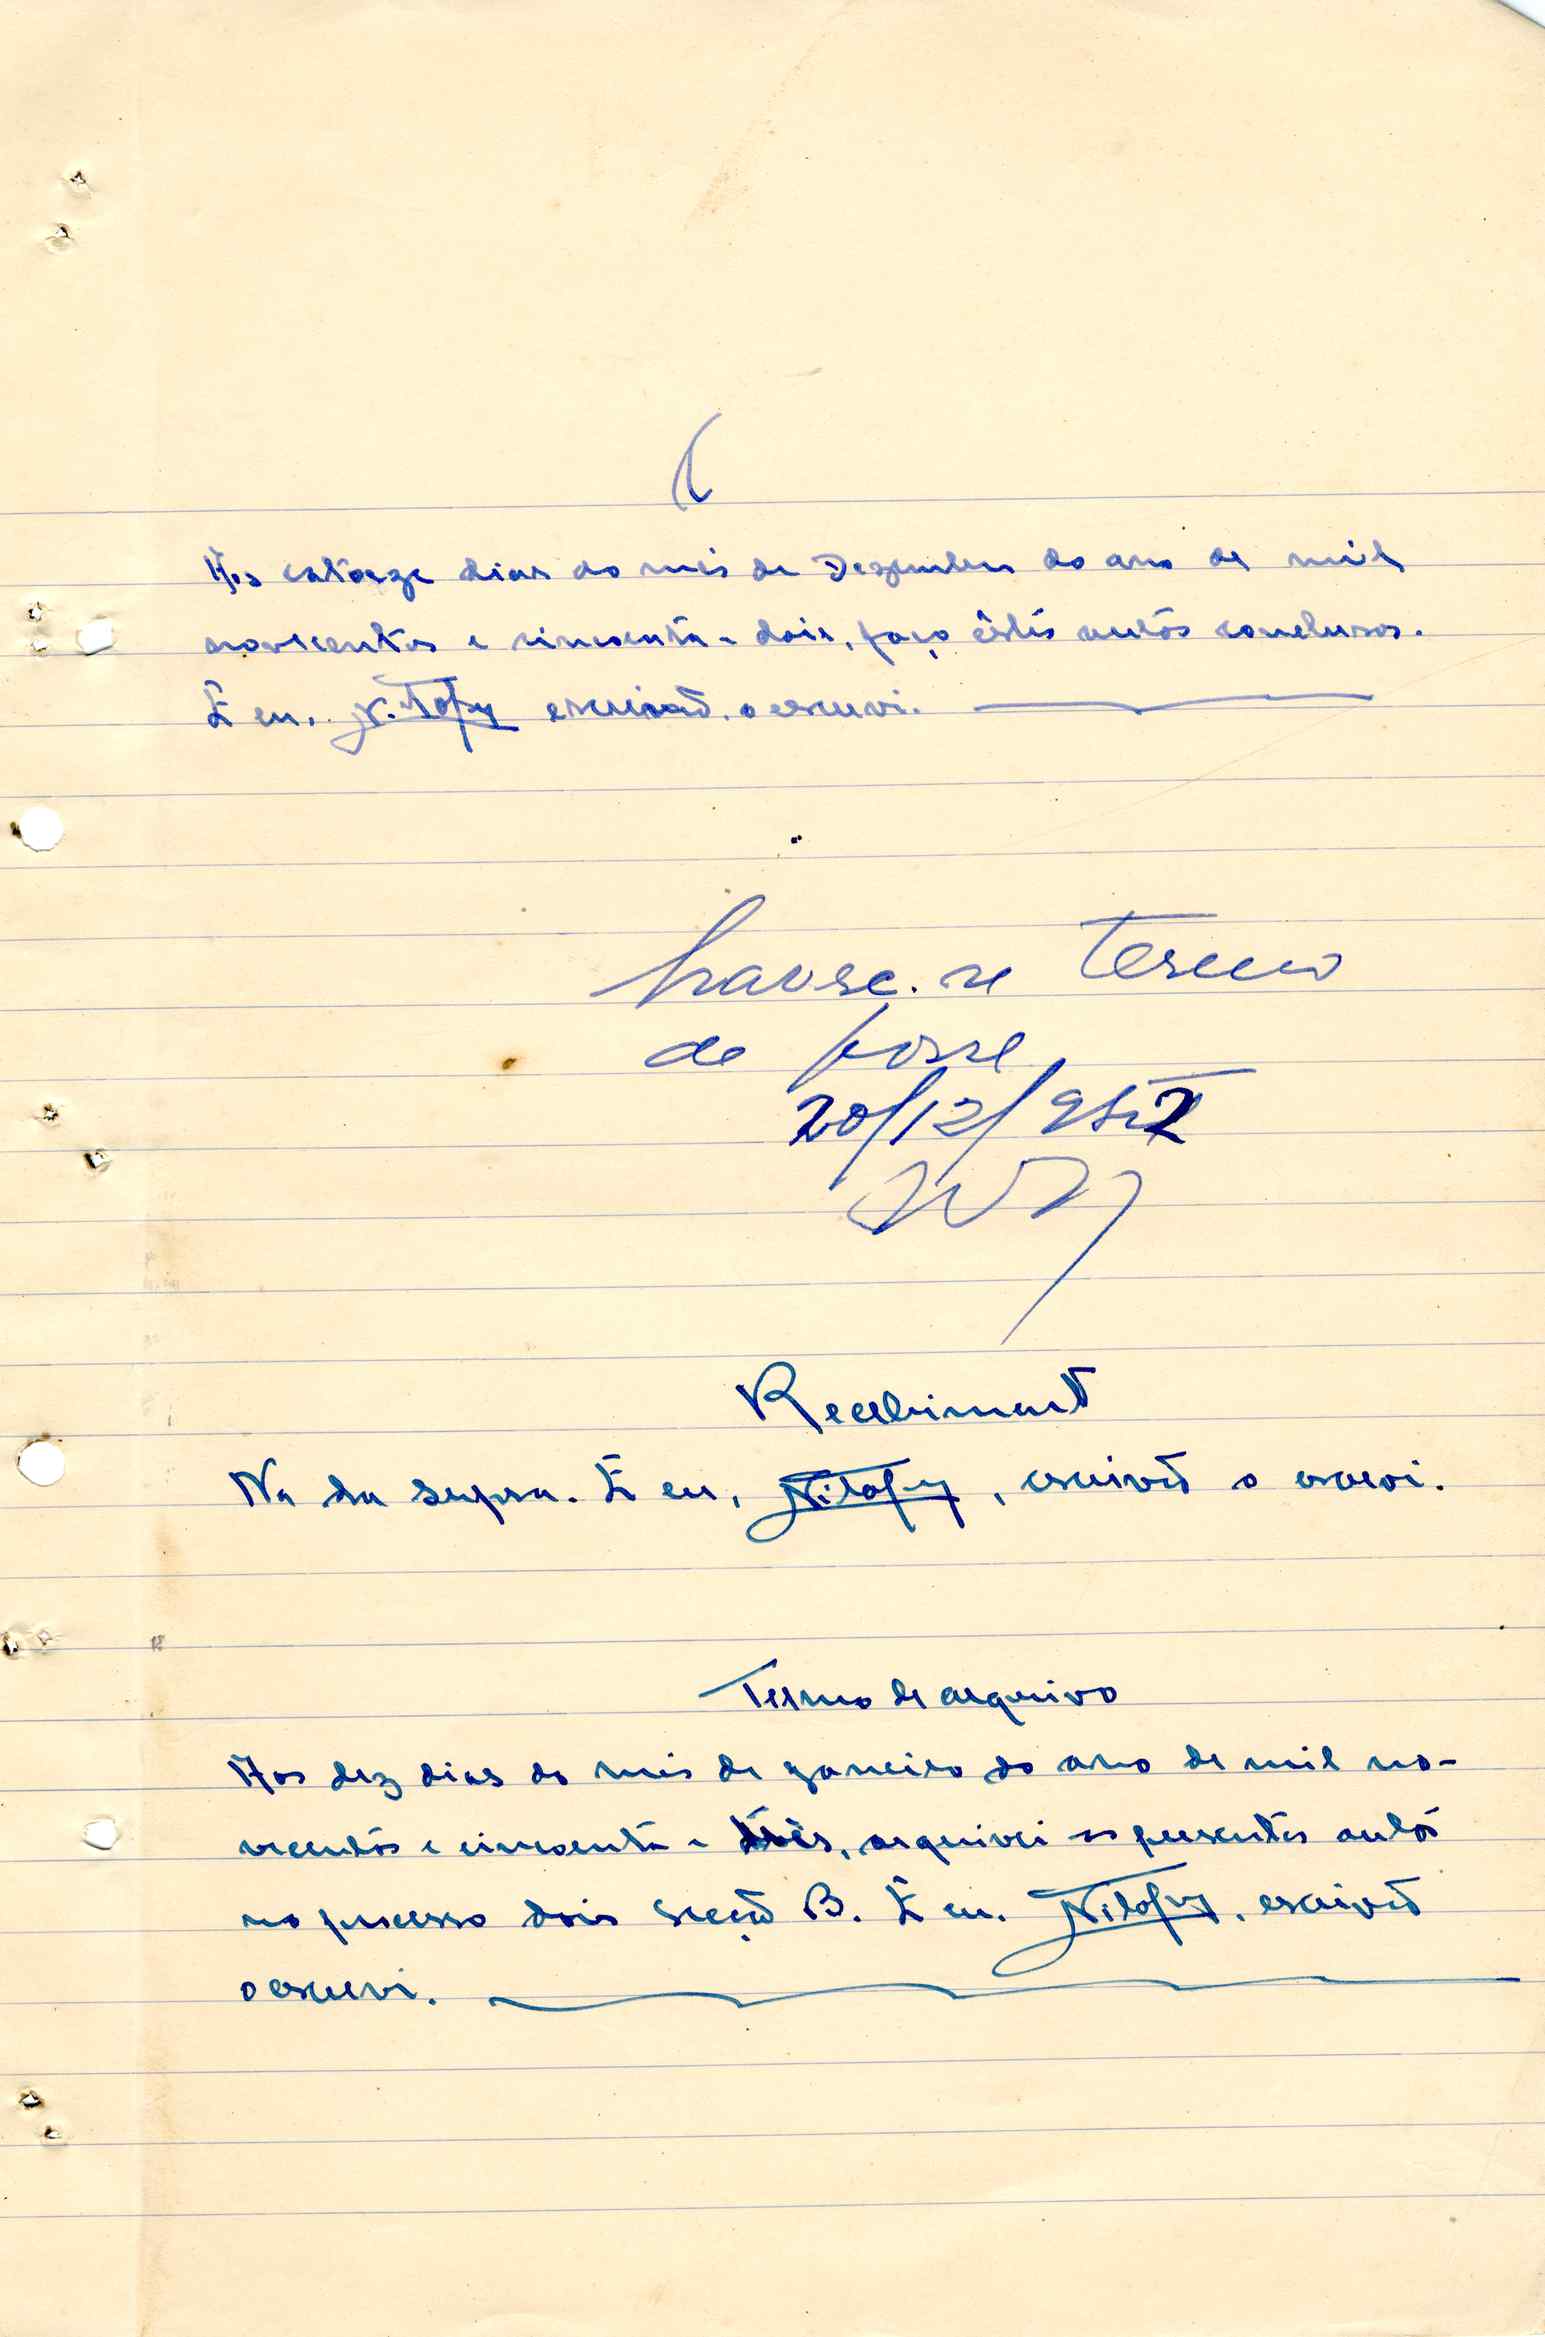 Aos catorze dias do mês de Dezembro do ano de mil
novecentos e cincoenta e dois, faço êstes autos conclusos.
E eu, escrivão, o escrevi.
Lavre-se Termo
de posse
20/12/952
Recebimento
Na da supra. E eu, , escrivão o escrevi.
Termo de arquivo
Aos dez dias do mês de janeiro do ano de mil no-
vecentos e cincoenta e três, arquivei os presentes autos
no processo dois secção B. E eu, , escrivão
o escrevi.